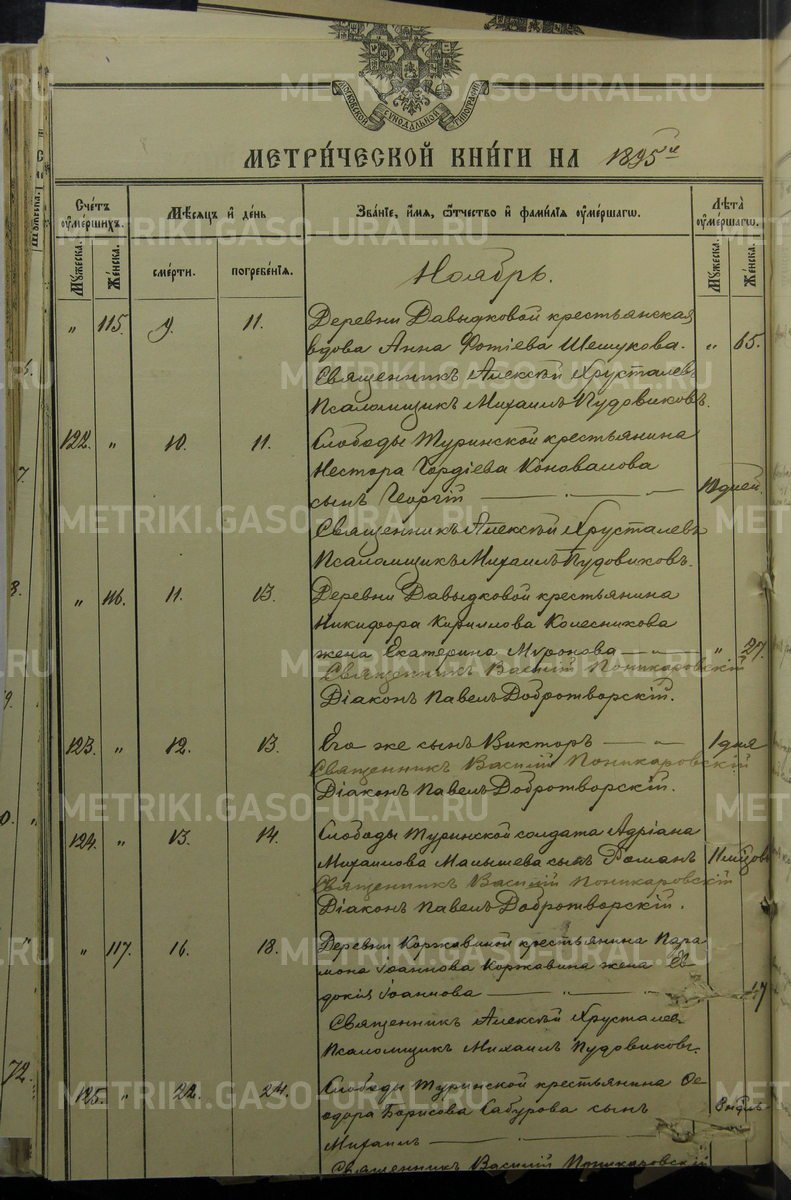 МОСКОВСКОЙ СѴНОДАЛЬНОЙ ТИПОГРАФІИ
МЕТРИ́ЧЕСКОЙ КНИ́ГИ НА 1895й
Сче́тъ оумершихъ.
Мѣсяцъ и день
Зва́нїе, и́мя, ѻ҆́тчество и фами́лїя оуме́ршагѡ.
Лѣта оуме́ршагѡ.
Мужеска. Женска. сме́рти. погребе́нїя. Мужеска. Женска.
Ноябрь.
„ 115. 9. 11. Деревни Давыдковой крестьянская
вдова Анна Фотіева Шешукова. „ 65.
Священникъ Алексѣй Хрусталевъ
Псаломщикъ Михаилъ Пудовиковъ.
122. „ 10. 11. Слободы Туринской крестьянина
Нестора Гордіева Коновалова
сынъ Георгій — „ — дней.
Священникъ Алексѣй Хрусталевъ
Псаломщикъ Михаилъ Пудовиковъ.
„ 116. 11. 13. Деревни Давыдковой крестьянина
Никифора Кириллова Колесникова
жена Екатерина Миронова — „ — „ 27.
Священникъ Василій Поникаровскій
Діаконъ Павелъ Добротворскій.
123. „ 12. 13. Его же сынъ Викторъ — „ 1 дня
Священникъ Василій Поникаровскій
Діаконъ Павелъ Добротворскій.
124. „ 13. 14. Слободы Туринской солдата Адріана
Михаилова Малышева сынъ Романъ 11 мѣсцов
Священникъ Василій Поникаровскій
Діаконъ Павелъ Добротворскій.
„ 117. 16. 18. Деревни Коржавиной крестьянина Пара
мона Іоаннова Коржавина жена Ев
докія Іоаннова — „ —
Священникъ Алексѣй Хрусталев
Псаломщикъ Михаилъ Пудовиковъ.
125. „ 22. 24. Слободы Туринской крестьянина Ѳе
одора Борисова Сабурова сынъ 8 недѣль
Михаилъ —
Священникъ Василій Поникаровскій
METRIKI.GASO-URAL.RU